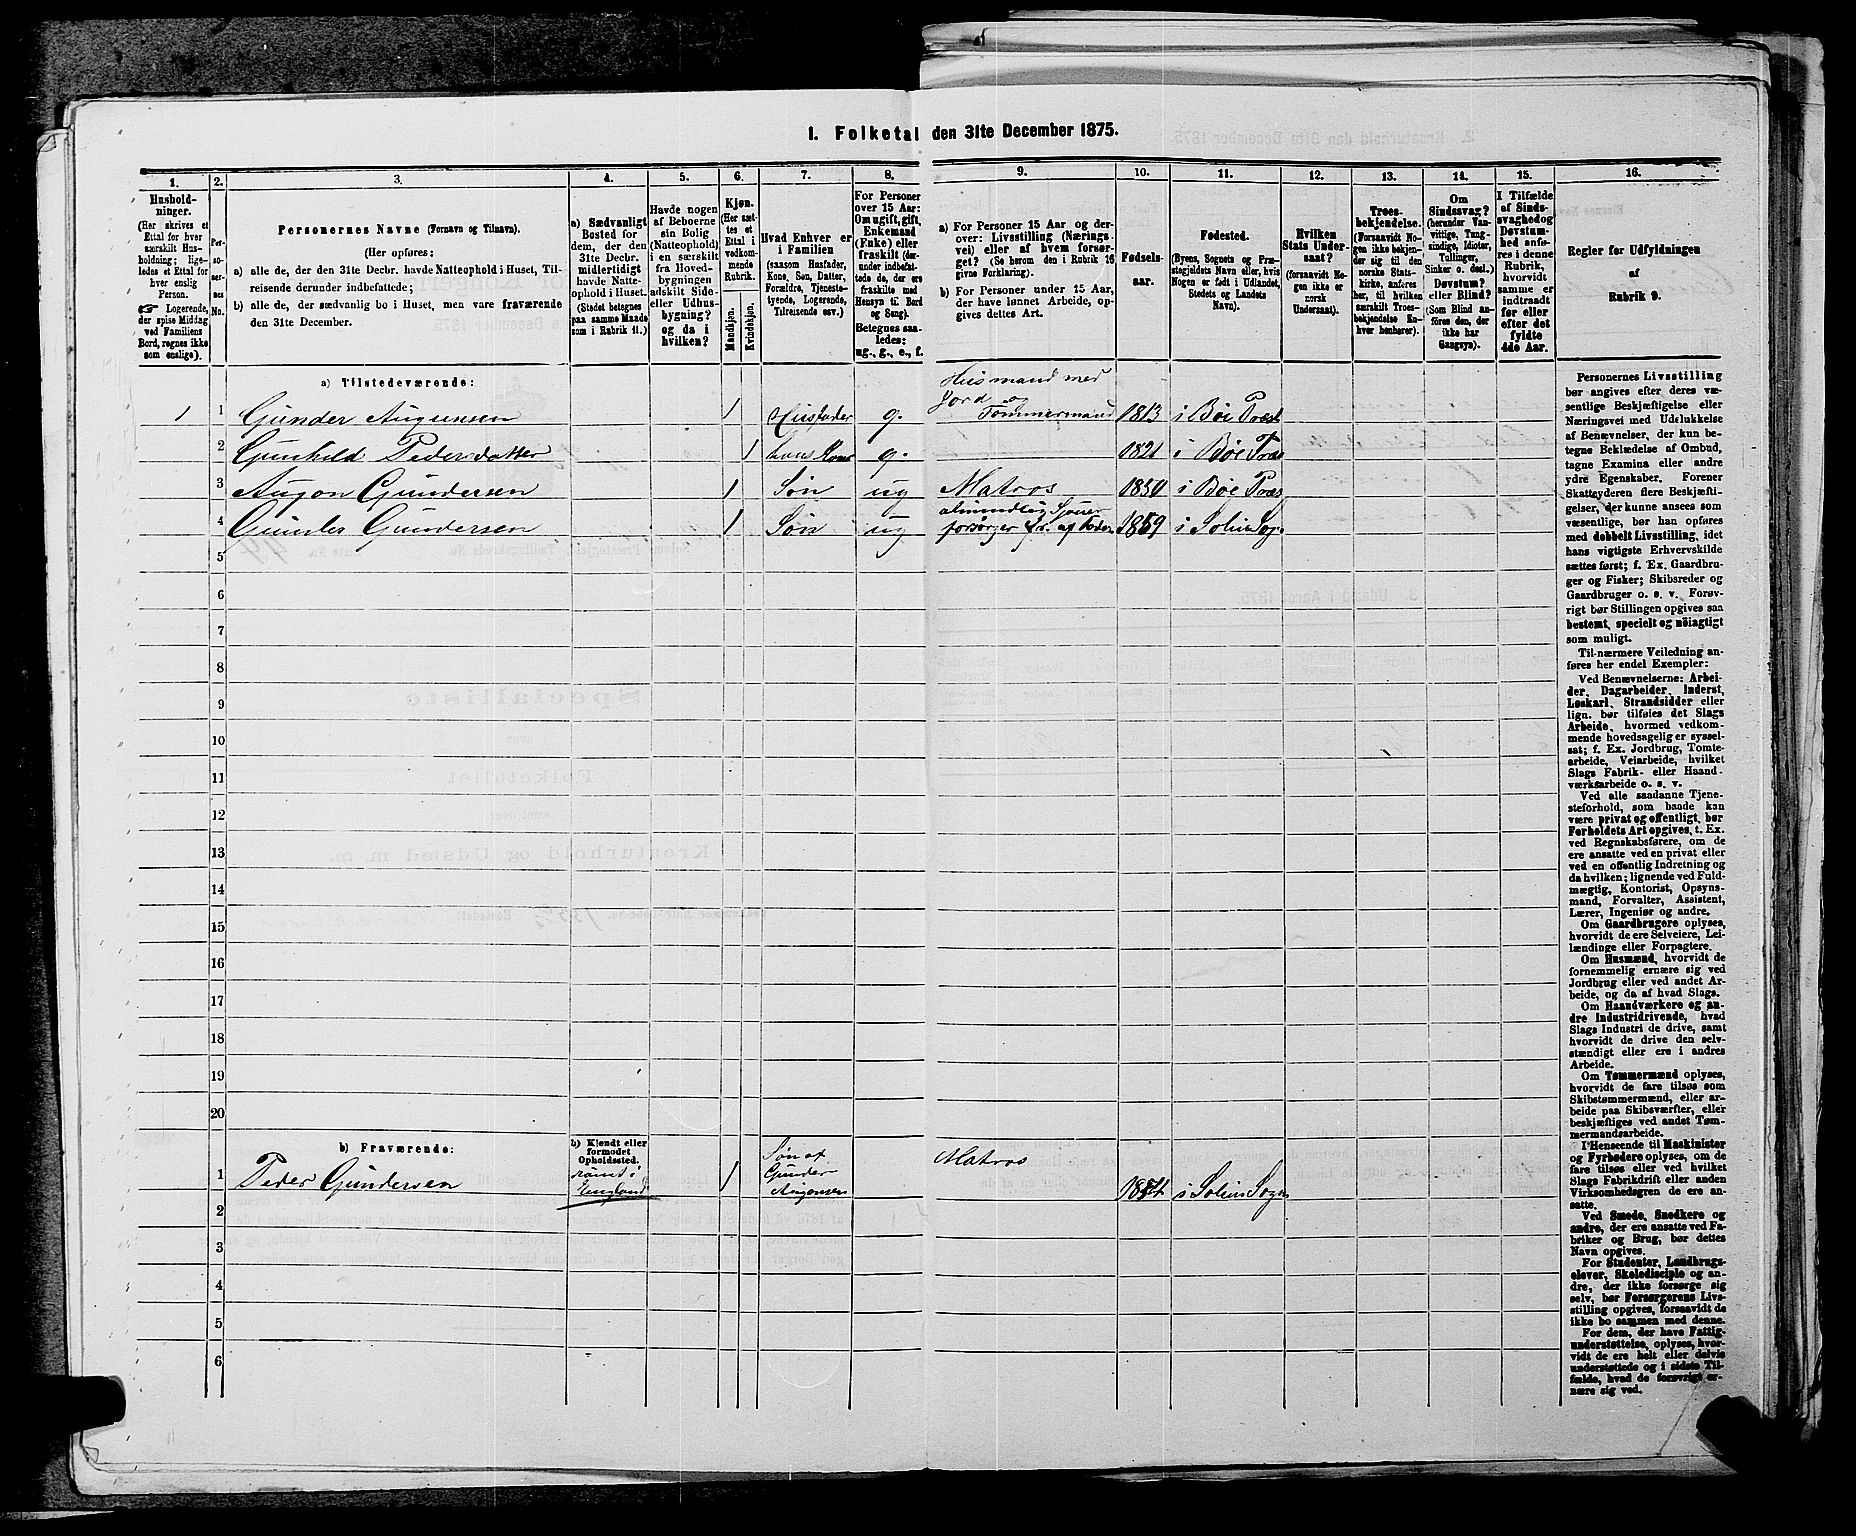 1. Folketal den 31te December 1875.
1.
Hushold-
ninger.
(Her skrives et
Ettal for hver
særskilt Hus-
holdning; lige-
ledes et Ettal for
hver enslig
Person.
☞ Logerende,
der spise Middag
ved Familiens
Bord, regnes ikke
som enslige).
2.
Per-
soner-
nes
No.
3.
Personernes Navne (Fornavn og Tilnavn).
(Her opføres:
a) alle de, der den 31te Decbr. havde Natteophold i Huset, Til-
reisende derunder indbefattede;
b) alle de, der sædvanlig bo i Huset, men vare fraværende
den 31te December.
4.
a) Sædvanligt
Bosted for
dem, der den
31te Decbr.
midlertidigt
havde Natte-
ophold i Huset.
(Stedet betegnes
paa samme Maade
som i Rubrik 11.)
5.
Havde nogen
af Beboerne
sin Bolig
(Natteophold)
i en særskilt
fra Hoved-
bygningen
adskilt Side-
eller Udhus-
bygning?
og da i
hvilken?
6.
Kjøn.
(Her sæt-
tes et
Ettal i
vedkom-
mende
Rubrik.
Mandkjøn.
Kvindekjøn.
7.
Hvad Enhver er
i Familien
(saasom Husfader,
Kone, Søn, Datter,
Forældre, Tjeneste-
tyende, Logerende,
Tilreisende osv.)
8.
For Personer
over 15 Aar:
Om ugift, gift,
Enkemand
(Enke) eller
fraskilt (der-
under indbefat-
tede de, der ere
fraskilte med
Hensyn til Bord
og Seng).
Betegnes saa-
ledes:
ug., g., e., f.
9.
a) For Personer 15 Aar og der-
over: Livsstilling (Nærings-
vei) eller af hvem forsør-
get? (Se herom den i Rubrik 16
givne Forklaring).
b) For Personer under 15 Aar,
der have lønnet Arbeide, op-
gives dettes Art.
10.
Fødsels-
aar.
11.
Fødested.
(Byens, Sognets og Præ-
stegjeldets Navn eller, hvis
Nogen er født i Udlandet,
Stedets og Landets
Navn).
12.
Hvilken
Stats Under-
saat?
(forsaavidt No-
gen ikke er
norsk
Undersaat).
13.
Troes-
bekjendelse.
(Forsaavidt No-
gen ikke bekjen-
der sig til den
norske Stats-
kirke, anføres
her, til hvilken
særskilt Troes-
bekjendelse En-
hver henhører).
14.
Om
Sindssvag?
(herunder Van-
vittige, Tung-
sindige, Idioter,
Tullinger,
Sinker o. desl.)
Døvstum?
eller Blind?
(Som Blind an-
føres den, der
ikke har
Gangsyn).
15.
I Tilfælde
af Sinds-
svaghed og
Døvstum-
hed anfø-
res i denne
Rubrik,
hvorvidt
samme er
indtraadt
før eller
efter det
fyldte
4de Aar.
16.
Regler for Udfyldningen
af
Rubrik 9.
a) Tilstedeværende:
1 1 Gunder Augunsen 1 Husfader g. Husmand med Jord og Tømmermand 1813 i Bøe Præst
2 Gunhild Pedersdatter 1 hans Kone g. 1821 i Bøe Præs
3 Augon Gundersen 1 Søn ug Matros 1850 i Bøe Præs
4 Gunder Gundersen 1 Søn ug forsørger 1859 i Solum Sog.
5
6
7
8
9
10
11
12
13
14
15
16
17
18
19
20
b) Fraværende:
b) Kjendt eller
formodet
Opholdssted.
1 Peder Gundersen England 1 Søn af Gunder Augonsen Matros 1854 i Solum Sogn
2
3
4
5
6
Personernes Livsstilling
bør angives efter deres væ-
sentlige Beskjæftigelse eller
Næringsvei med Udelukkelse
af Benævnelser, der kun be-
tegne Beklædelse af Ombud,
tagne Examina eller andre
ydre Egenskaber. Forener
Skatteyderen flere Beskjæfti-
gelser, der kunne ansees som
væsentlige, bør han opføres
med dobbelt Livsstilling, idet
hans vigtigste Erhvervskilde
sættes først; f. Ex. Gaardbru-
ger og Fisker; Skibsreder og
Gaardbruger o. s. v. Forøv-
rigt bør Stillingen opgives saa
bestemt, specielt og nøiagtigt
som muligt.
Til nærmere Veiledning an-
føres her endel Exempler:
Ved Benævnelserne: Arbei-
der, Dagarbeider, Inderst,
Løskarl, Strandsidder eller
lign. bør tilføies det Slags
Arbeide, hvormed vedkom-
mende hovedsagelig er syssel-
sat; f. Ex. Jordbrug, Tomte-
arbeide, Veiarbeide, hvilket
Slags Fabrik- eller Haand-
værksarbeide o. s. v.
Ved alle saadanne Tjene-
steforhold, som baade kan
være privat og offentligt, bør
Forholdets Art opgives, t. Ex.
ved Regnskabsførere, om de
ere ansatte ved en privat eller
ved en offentlig Indretning og
da hvilken; lignende ved Fuld-
mægtig, Kontorist, Opsyns-
mand, Forvalter, Assistent,
Lærer, Ingeniør og andre.
Om Gaardbrugere oplyses,
hvorvidt de ere Selveiere, Lei-
lændinge eller Forpagtere.
Om Husmænd, hvorvidt de
fornemmelig ernære sig ved
Jordbrug eller ved andet Ar-
beide, og da af hvad Slags.
Om Haandværkere og an-
dre Industridrivende, hvad
Slags Industri de drive, samt
hvorvidt de drive den selv-
stændigt eller ere i andres
Arbeide.
Om Tømmermænd oplyses,
hvorvidt de fare tilsøs som
Skibstømmermænd, eller ar-
beide paa Skibsværfter, eller
beskjæftiges ved andet Tøm-
mermandsarbeide.
I Henseende til Maskinister
og Fyrbødere oplyses, om de
fare tilsøs eller ved hvilket
Slags Fabrikdrift eller anden
Virksomhedsgren de ere an-
satte.
Ved Smede, Snedkere og
andre, der ere ansatte ved Fa-
briker og Brug, bør dettes
Navn opgives.
For Studenter, Landbrugs-
elever, Skoledisciple og an-
dre, der ikke forsørge sig
selv, bør Forsørgerens Livs-
stilling opgives, forsaavidt de
ikke bo sammen med denne.
For dem, der have Fattig-
understøttelse, oplyses, hvor-
vidt de ere helt eller delvis
understøttede og i sidste Til-
fælde, hvad de forøvrigt er-
nære sig ved.